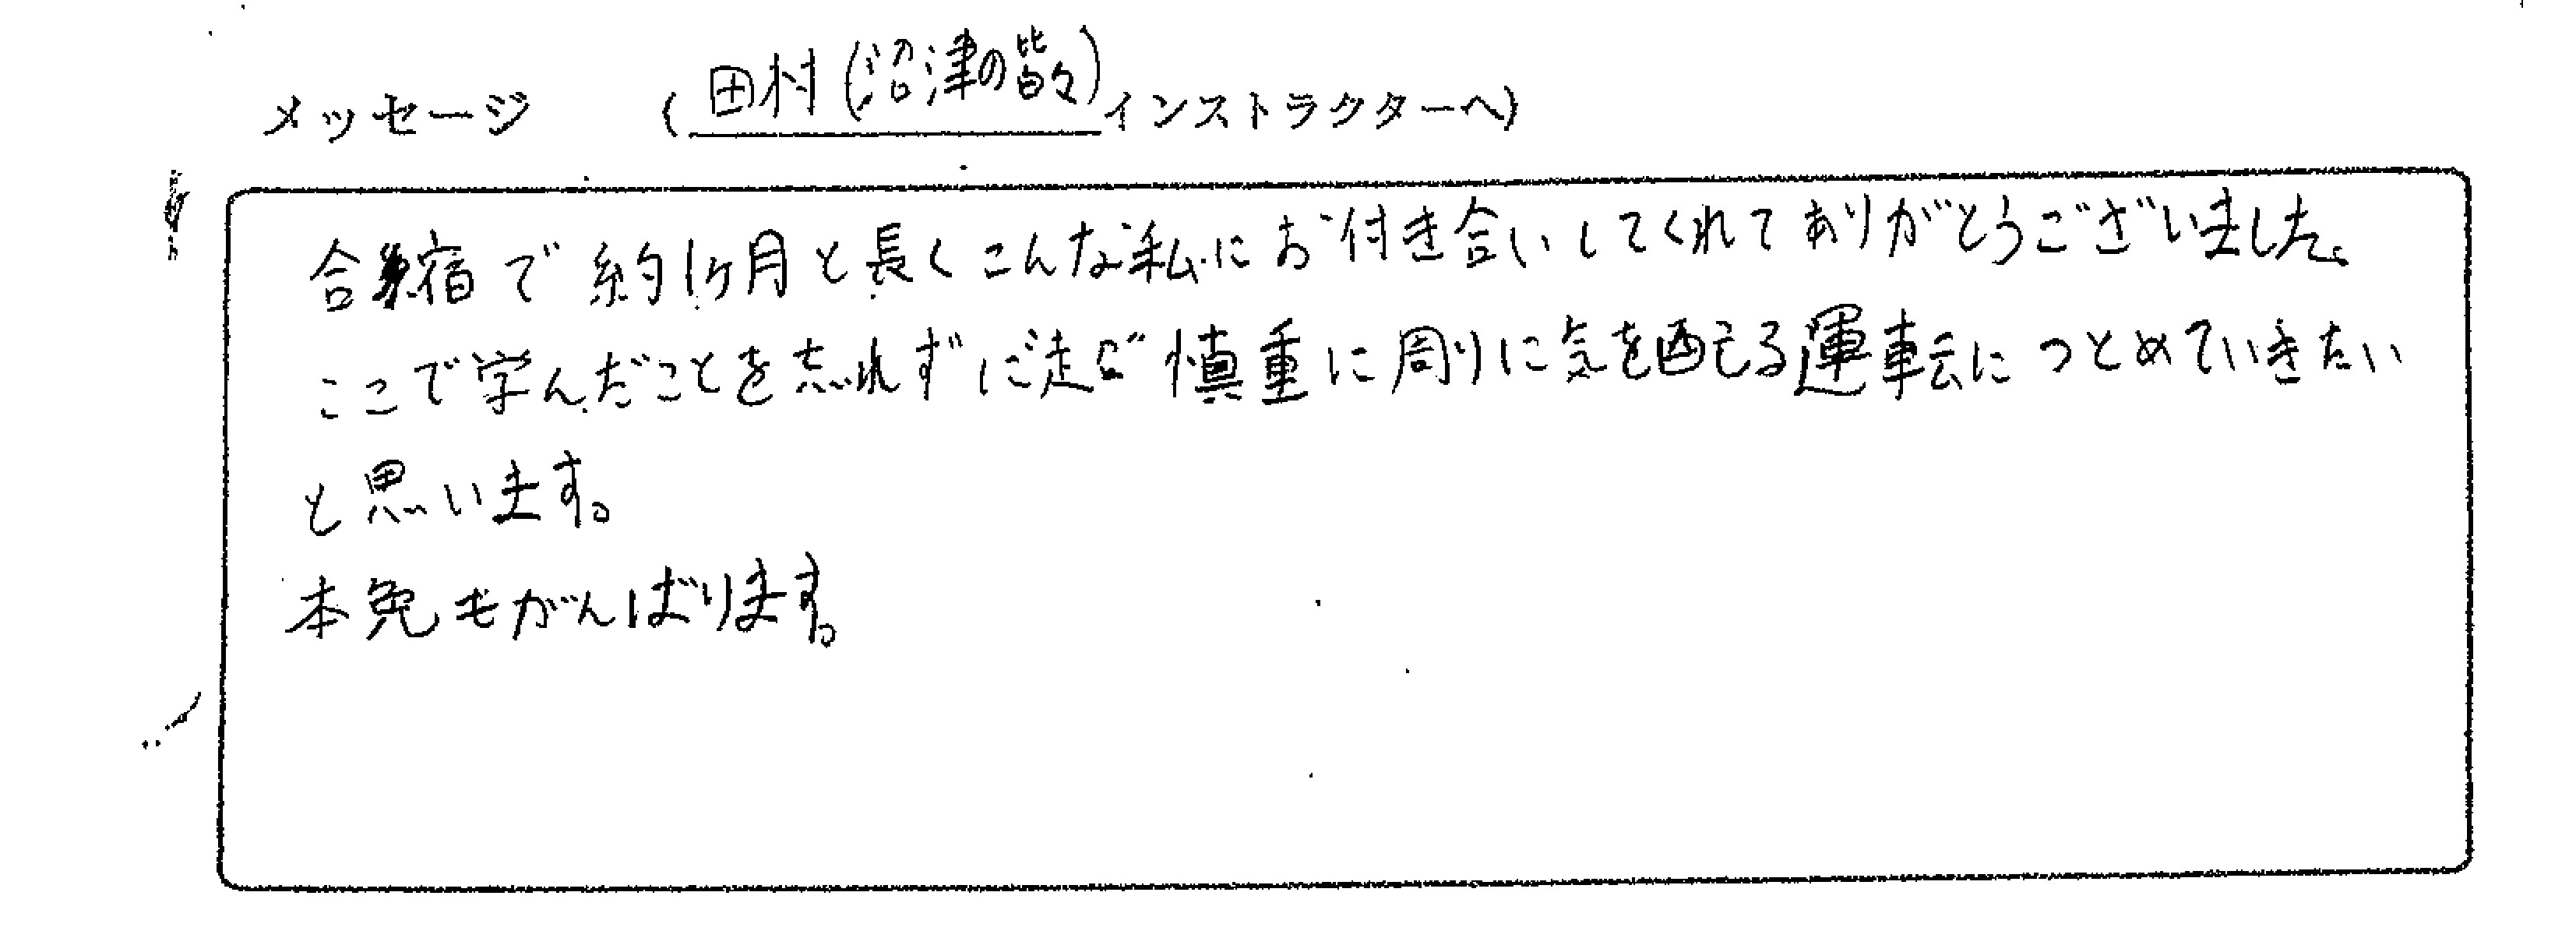 メッセージ (田村(沼津の皆々)インストラクターへ)
合宿で約1ヶ月と長くこんな私にお付き合いしてくれてありがとうございました。
ここで学んだことを忘れずに 慎重に周りに気を配る運転につとめていきたい
と思います。
本免もがんばります。